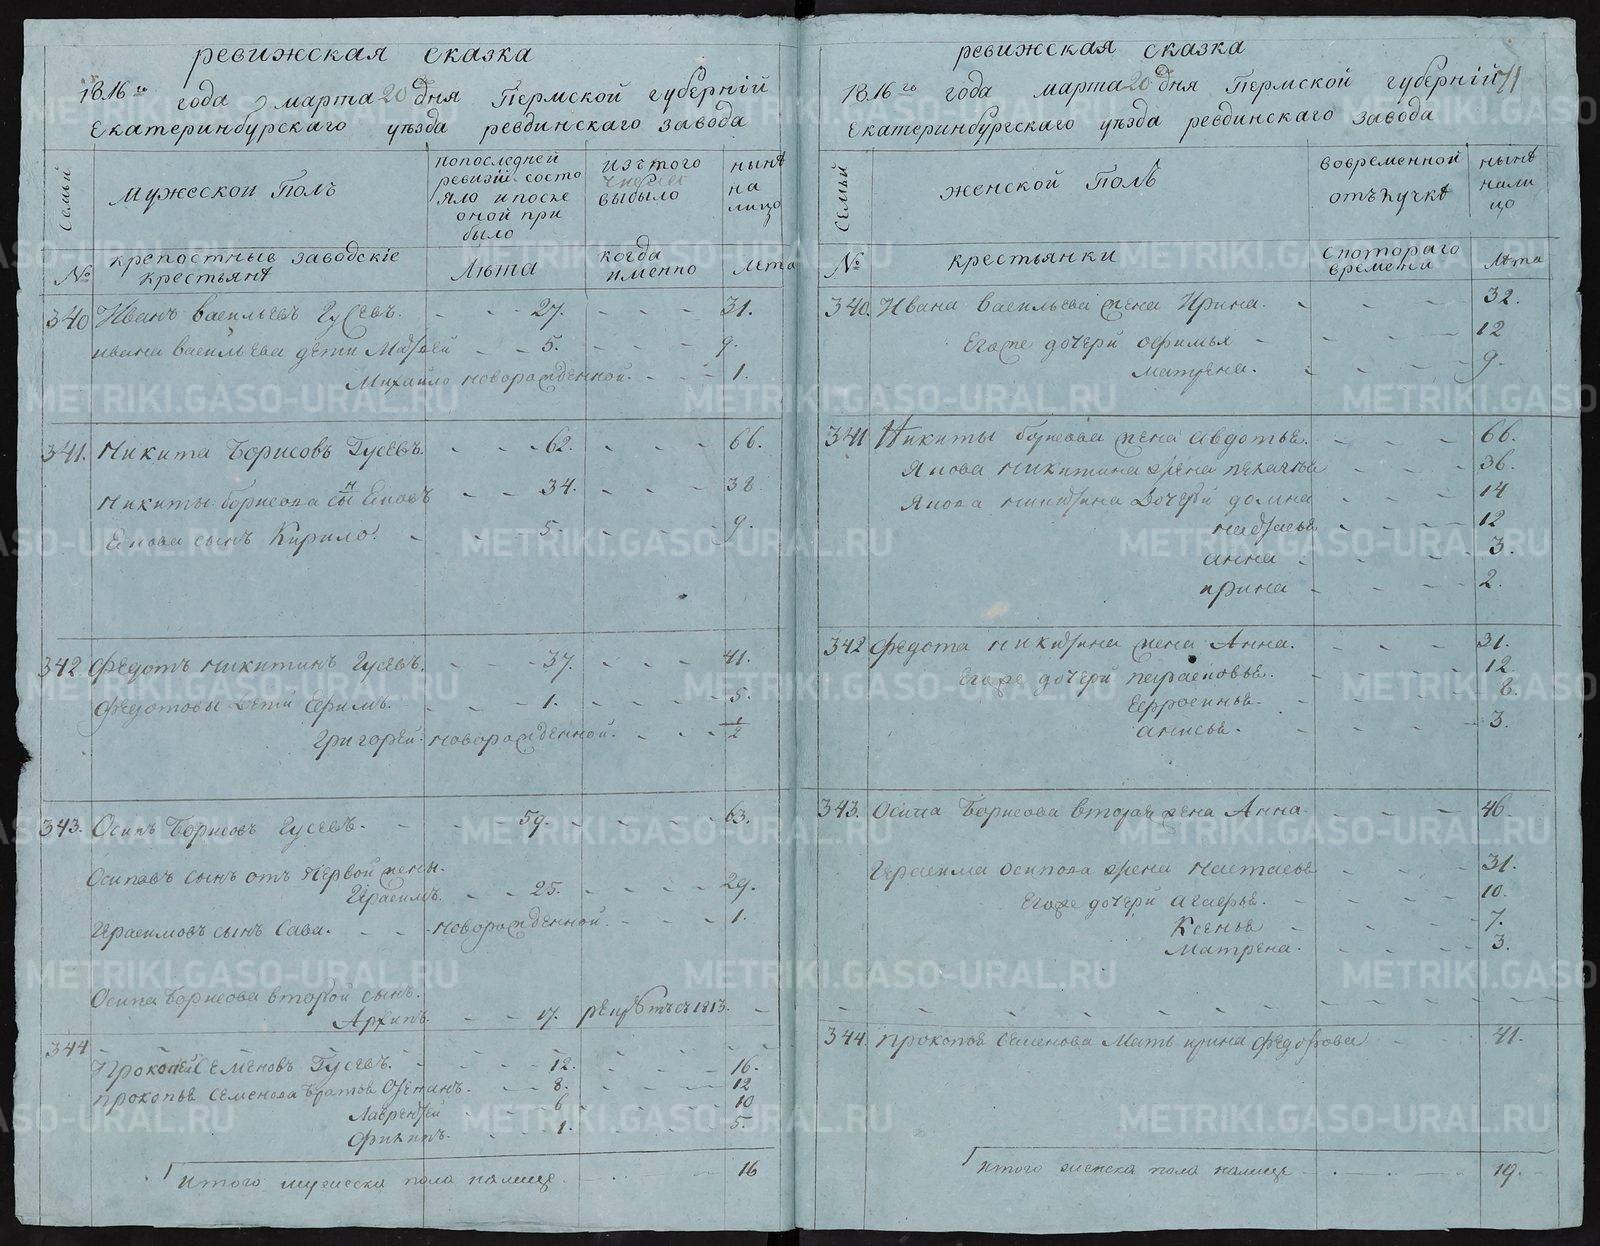 ревижская сказка
1816го года марта 20 дня Пермской губерній
Екатеринбурскаго уѣзда ревдинскаго завода
Семьи
мужеской Полъ
попоследней
ревизіи состо
яло ипосле
оной при
было
изътого
числа
выбыло
нынѣ
на
лицо
№
крепостные заводскіе
крестьянѣ
Лѣта
когда
именно
Лѣта
340 Иванъ васильевъ Гусевъ. 27. 31.
ивана васильева дети Матвей 5. 9.
Михайло новорожденной. 1.
341. Никита Борисовъ Гусевъ. 62. 66.
Никиты борисова сынъ 34. 38
сынъ Кирило. 5. 9.
342 Федотъ никитинъ Гусевъ. 37. 41.
Федотовы дети Ефимъ. 1. 5.
Григорей новорожденной. 1/2
343. Осипъ Борисовъ Гусевъ. 59. 63.
Осиповъ сынъ отъ первой жены.
Герасимъ. 25. 29.
Герасимовъ сынъ Сава. новорожденной. 1.
Осипа борисова второй сынъ.
Архипъ. 17. 1813.
344
Прокопей Семеновъ Гусевъ. 12. 16.
прокопья семенова братья Степанъ. 8. 12
Лаврентей 6 10
Филипъ. 1. 5.
итого мужеска пола налице 16
ревижская сказка
71
1816го года марта 20 дня Пермской губерній
Екатеринбургскаго уѣзда ревдинскаго завода
Семьи
женской Полъ
вовременной
отълучкѣ
нынѣ
нали
цо
№
крестьянки
скотораго
времени
Лѣта
340. Ивана васильева жена Ирина. 32.
Егоже дочери офимья 12
матрена. 9.
341 Никиты борисова жена авдотья. 66.
никитина жена пелагея 36.
никитина дочери домна 14
настасья 12
анна 3.
ирина 2.
342 Федота никитина жена Анна. 31.
Егоже дочери парасковья. 12
Ефросинья. 8.
анисья. 3.
343. Осипа Борисова вторая жена Анна 46.
Герасима осипова жена настасья 31.
Егоже дочери агафья. 10.
Ксенья 7.
Матрена. 3.
344 прокопья семенова мать ирина федотова 41.
итого женска пола налице 19.
METRIKI.GASO-URAL.RU